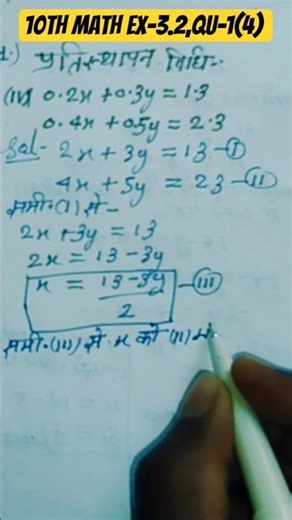 10TH MATH EX-3.2,QU-1(4)
1.) प्रतिस्थापन विधि:-
(iv) 0.2x + 0.3y = 1.3
0.4x + 0.5y = 2.3
Sol- 2x + 3y = 13 - I
4x + 5y = 23 - II
समी.(I) से -
2x + 3y = 13
2x = 13 - 3y
x = 13 - 3y - III
2
समी.(III) से x को (II)